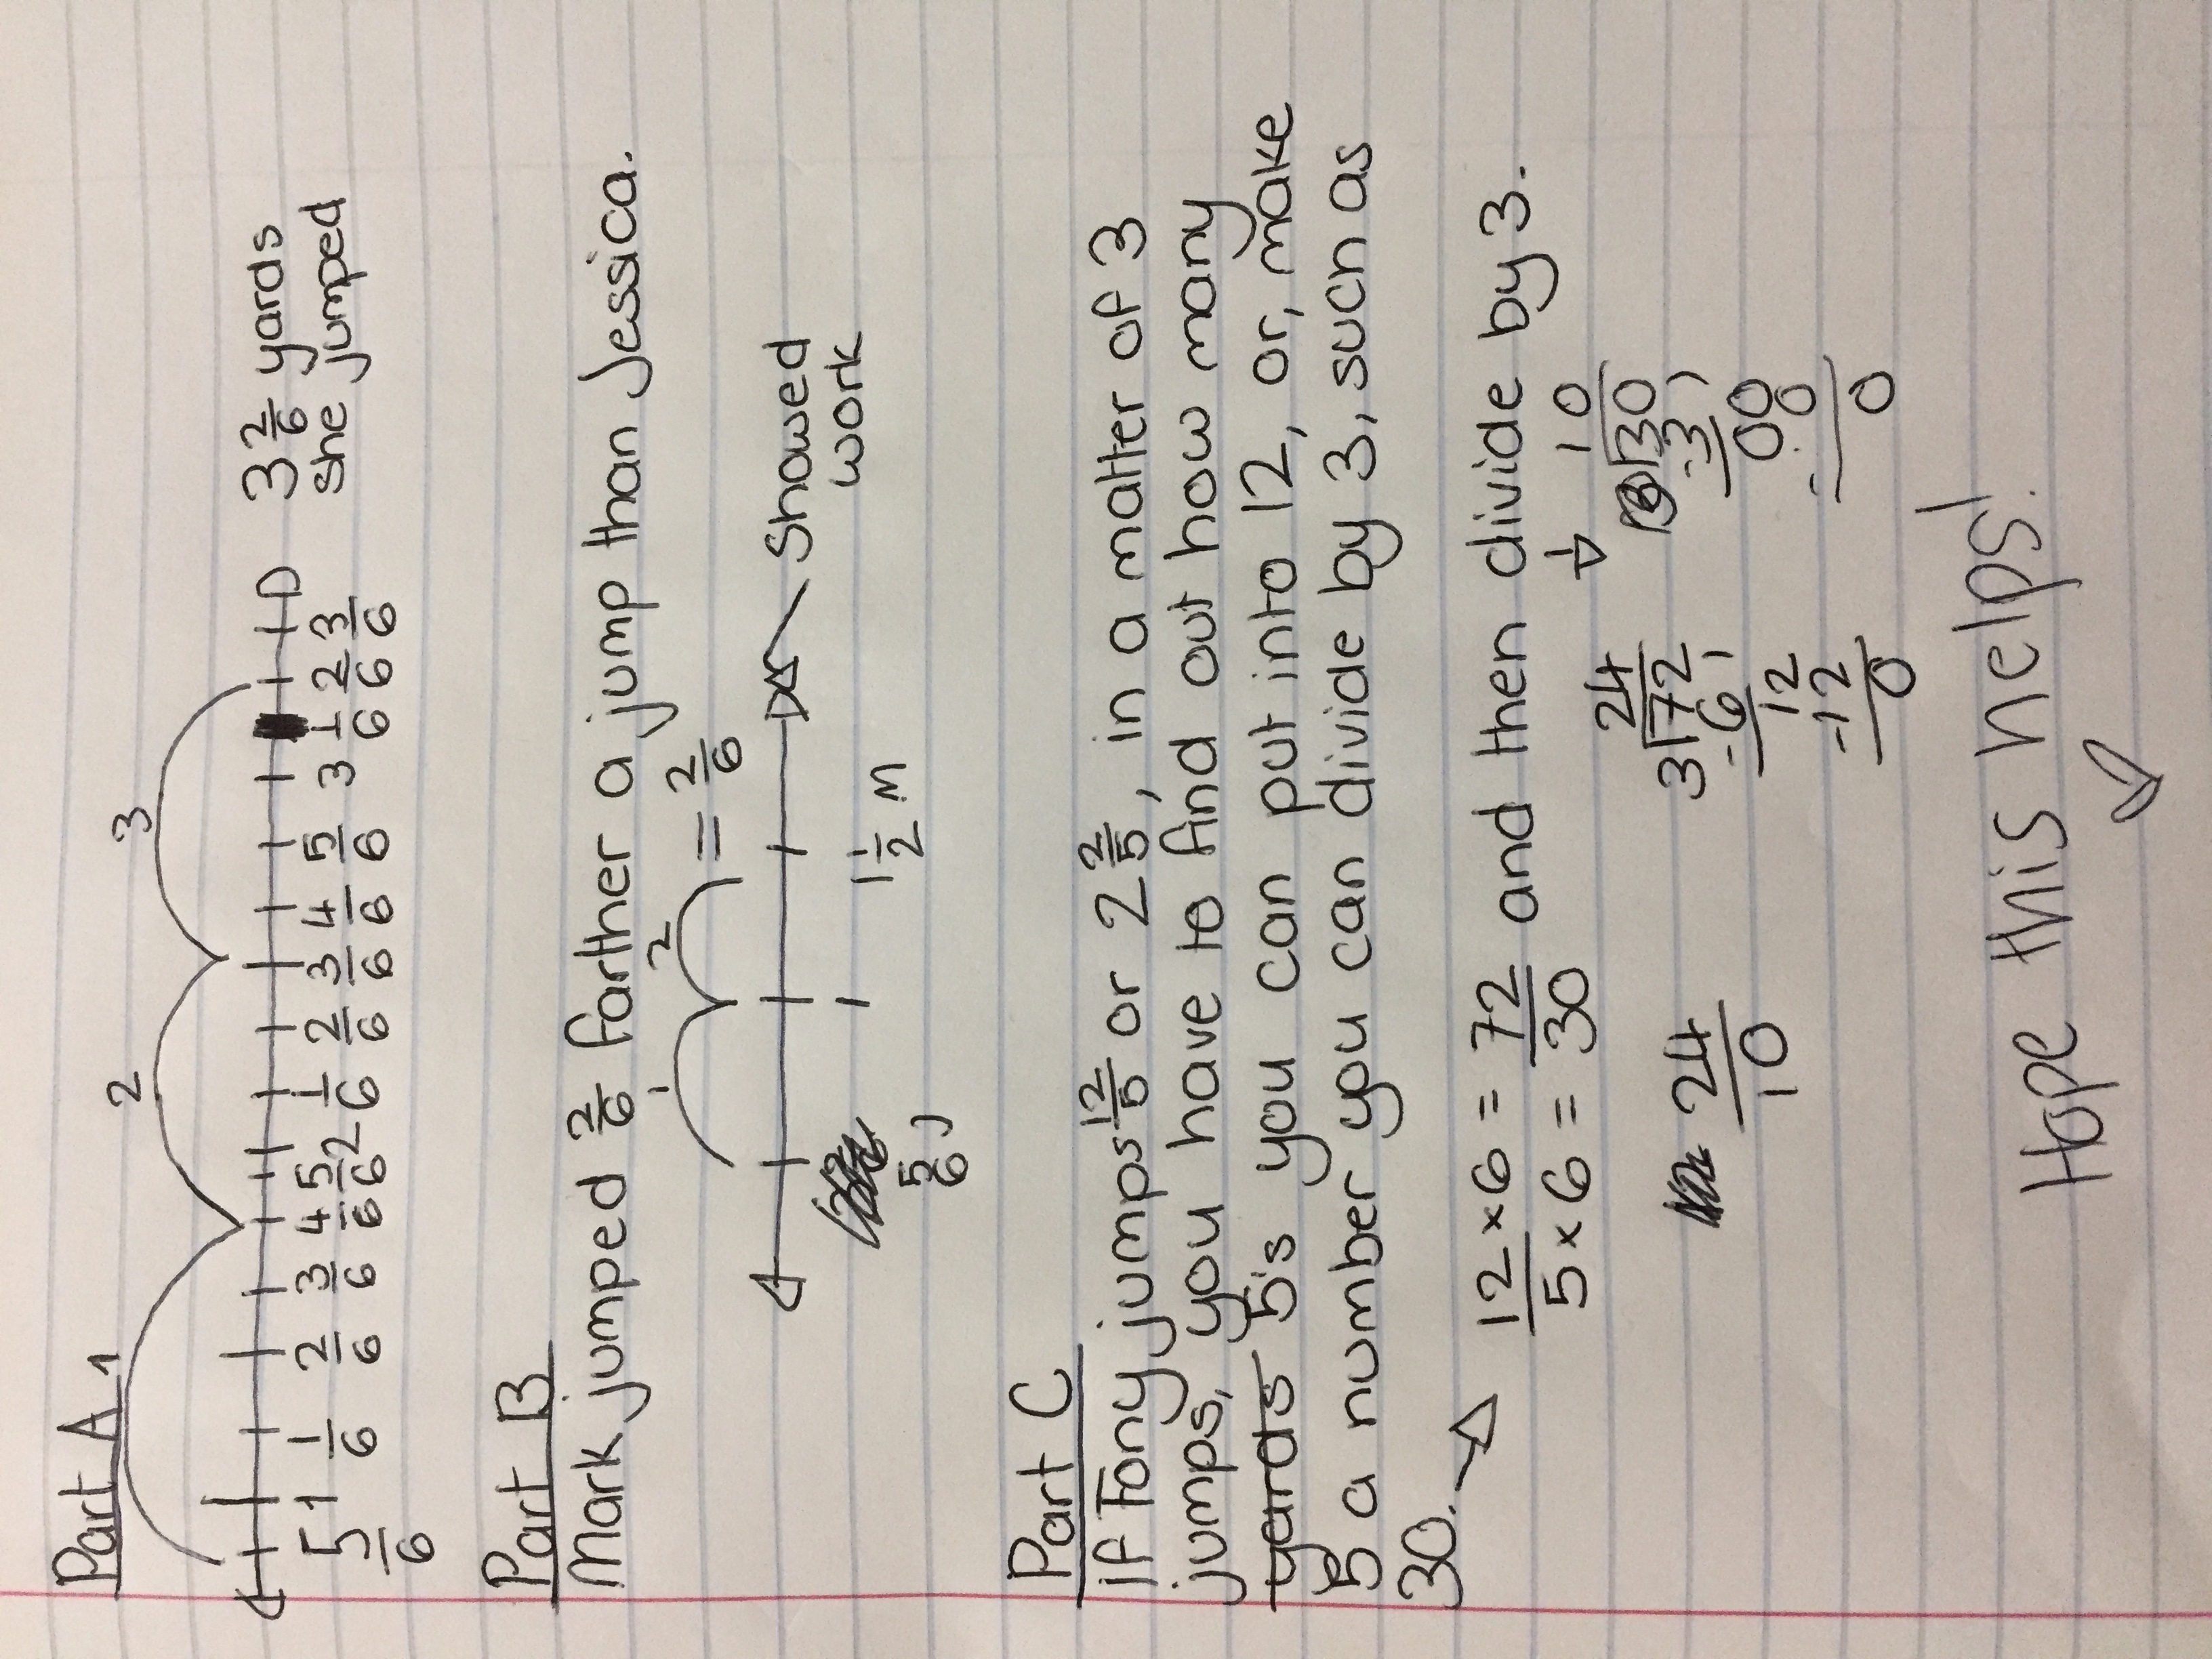 Part A
1 2 3
5/6 1 1/6 2/6 3/6 4/6 5/6 2 1/6 2/6 3/6 4/6 5/6 3 1/6 2/6 3/6
3 2/6 yards
she jumped
Part B
Mark jumped 2/6 farther a jump than Jessica.
1 2 = 2/6
5/6 J 1 1 1/2 M
Showed
work
Part C
If Tony jumps 12/5 or 2 2/5, in a matter of 3
jumps, you have to find out how many
yards 5's you can put into 12, or, make
5 a number you can divide by 3, such as
30. → 12 × 6 = 72 and then divide by 3.
5 × 6 = 30
24/10
24
3)72
-6
12
-12
0
10
3)30
-3
00
-0
0
Hope this helps!